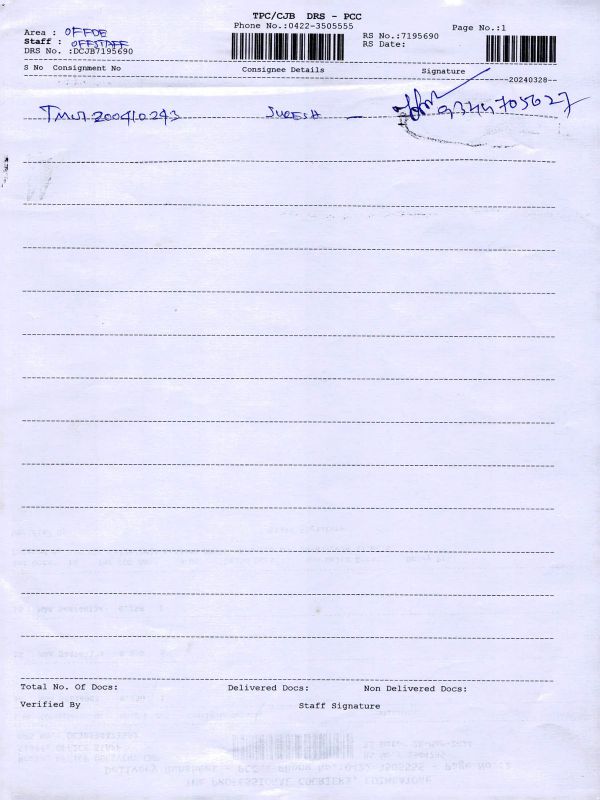 TPC/CJB DRS - PCC
Phone No.:0422-3505555
Page No.:1
Area : OFFDE
RS No.:7195690
Staff : OFFSTAFF
RS Date:
DRS No. :DCJB7195690
S No Consignment No Consignee Details Signature
--20240328--
200410243 SURESH —
Total No. Of Docs: Delivered Docs: Non Delivered Docs:
Verified By Staff Signature